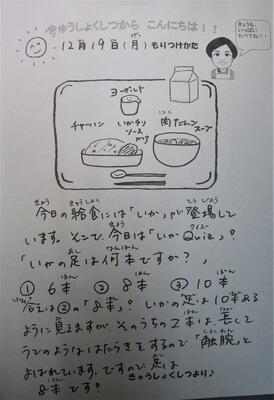 きゅうしょくしつから こんにちは!!
12月19日(月) もりつけかた
きょうも、
いっぱい
たべてね!!
ヨーグルト
チャーハン
いかチリ
ソース
肉だんご
スープ
今日の給食には「いか」が登場して
います。そこで今日は「いかQuiz」!
「いかの足は何本ですか?」
① 6本 ② 8本 ③ 10本
答えは②の「8本」! いかの足は10本ある
ように見えますが、そのうちの2本は、長くて
うでのようなはたらきをするので「触腕」と
よばれています。ですので足は
8本です!
きゅうしょくしつより♪